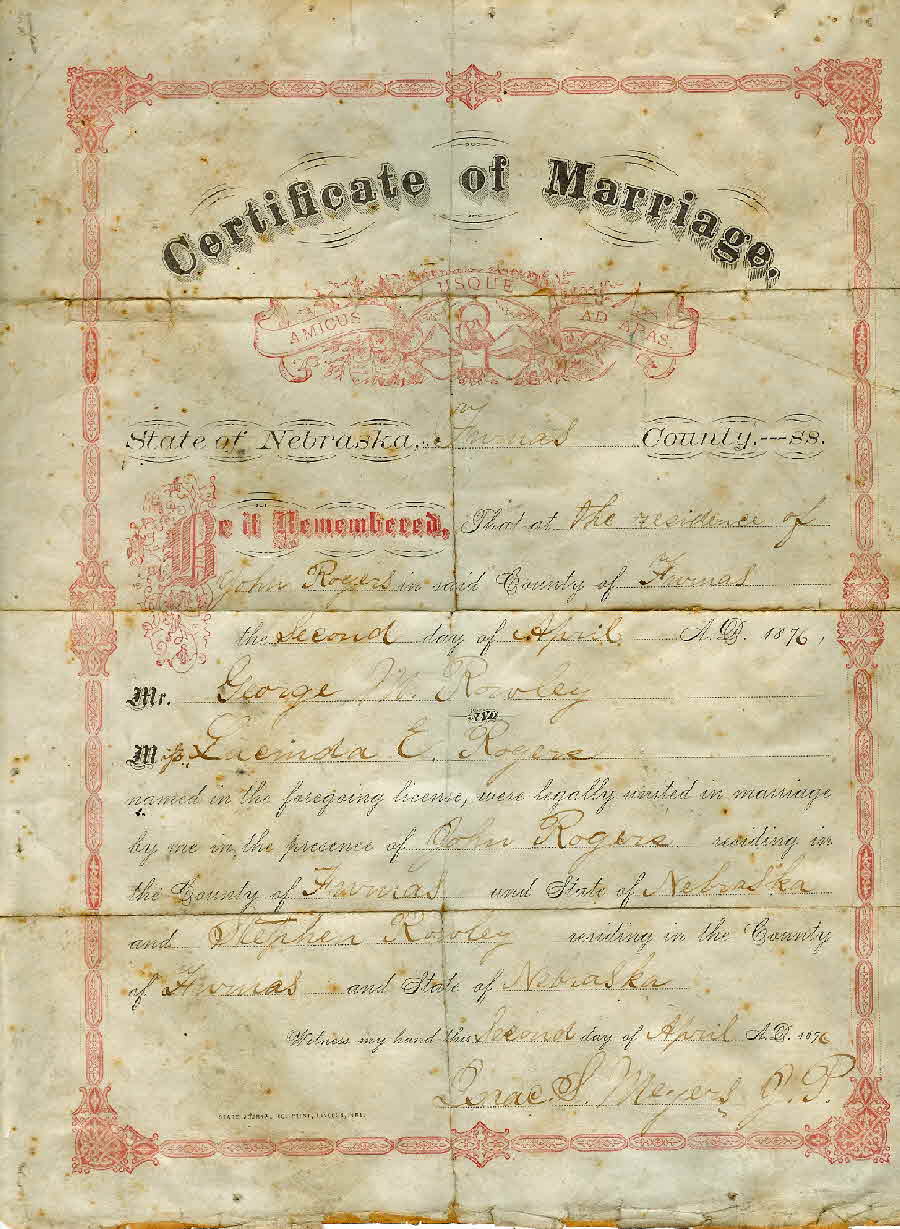 Certificate of Marriage.
AMICUS USQUE AD ARAS.
State of Nebraska, Furnas County.---ss.
Be it Remembered, That at the residence of
John Rogers in said County of Furnas
the Second day of April A.D. 1876,
Mr. George M. Rowley
AND
Miss Lucinda E. Rogers
named in the foregoing license, were legally united in marriage
by me in the presence of John Rogers residing in
the County of Furnas and State of Nebraska
and Stephen Rowley residing in the County
of Furnas and State of Nebraska
Witness my hand this Second day of April A.D. 1876
Isaac S. Meyers J.P.
STATE JOURNAL CO. PRINT, LINCOLN, NEB.